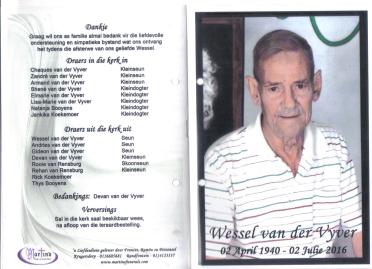 Dankie
Graag wil ons as familie almal bedank vir die liefdevolle
ondersteuning en simpatieke bystand wat ons ontvang
het tydens die afsterwe van ons geliefde Wessel.
Draers in die kerk in
Cheques van der Vyver Kleinseun
Zandré van der Vyver Kleinseun
Armand van der Vyver Kleinseun
Shené van der Vyver Kleindogter
Elmarie van der Vyver Kleindogter
Lisa-Marie van der Vyver Kleindogter
Natanja Booyens Kleindogter
Janikа Koekemoer Kleindogter
Draers uit die kerk uit
Wessel van der Vyver Seun
Andries van der Vyver Seun
Gideon van der Vyver Seun
Devan van der Vyver Kleinseun
Rooie van Rensburg Skoonseun
Rehan van Rensburg Kleinseun
Rick Koekemoer
Thys Booyens
Bedankings: Devan van der Vyver
Verversings
Sal in die kerk saal beskikbaar wees,
na afloop van die teraardbestelling.
Martina
'n Liefdesdiens gelewer deur Francois, Ramita en Personeel
Krugersdorp - 0116605681 Randfontein - 0114123337
www.martinsfunerals.com
Wessel van der Vyver
02 April 1940 - 02 Julie 2016